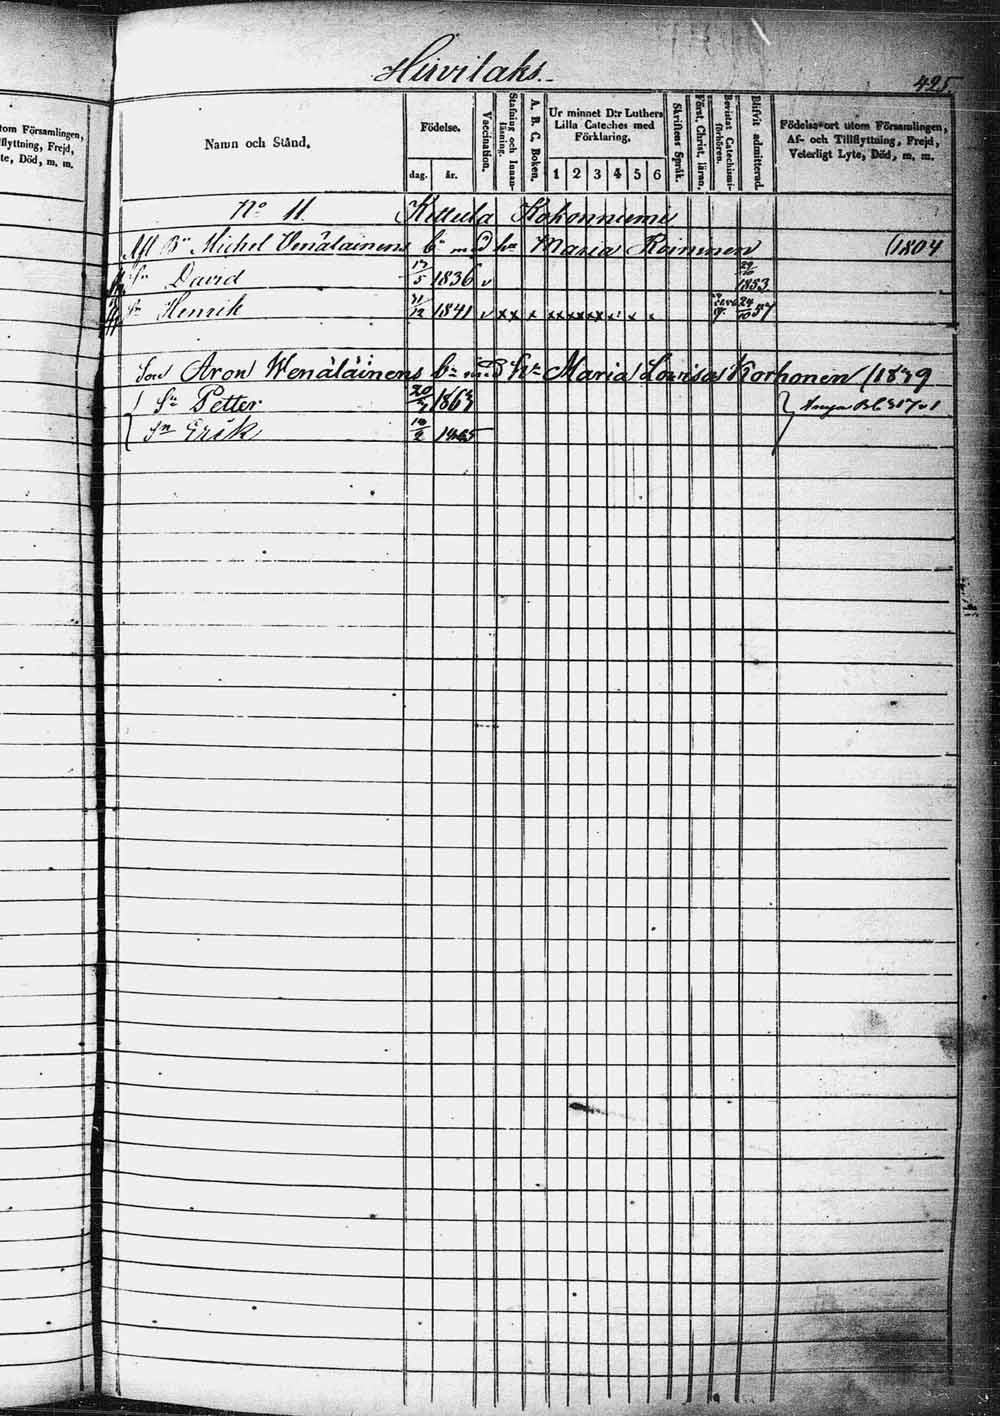 Hirvilaks.
425.
tom Församlingen,
flyttning, Frejd,
te, Död, m. m.
Namn och Stånd.
Födelse.
dag. år.
Vaccination.
Stafning och Innan-läsning.
A. B. C. Boken.
Ur minnet D:r Luthers
Lilla Cateches med
Förklaring.
1 2 3 4 5 6
Skriftens Språk.
Först. Christ. läran.
Bevistat Catechismi-förhören.
Blifvit admitterad.
Födelse-ort utom Församlingen,
Af- och Tillflyttning, Frejd,
Veterligt Lyte, Död, m. m.
No 11 Kettula Kohonniemi
Afl Bn Michel Venäläinens bn med hu Maria Roininen (1804
Sn David 17/5 1836 v 24/10 1853
Sn Henrik 21/12 1841 v xx x xxxxx 24/10 57
Son Aron Wenäläinens bn med hu Maria Lovisa Korhonen (1839
Sn Petter 20/3 1863
Sn Erik